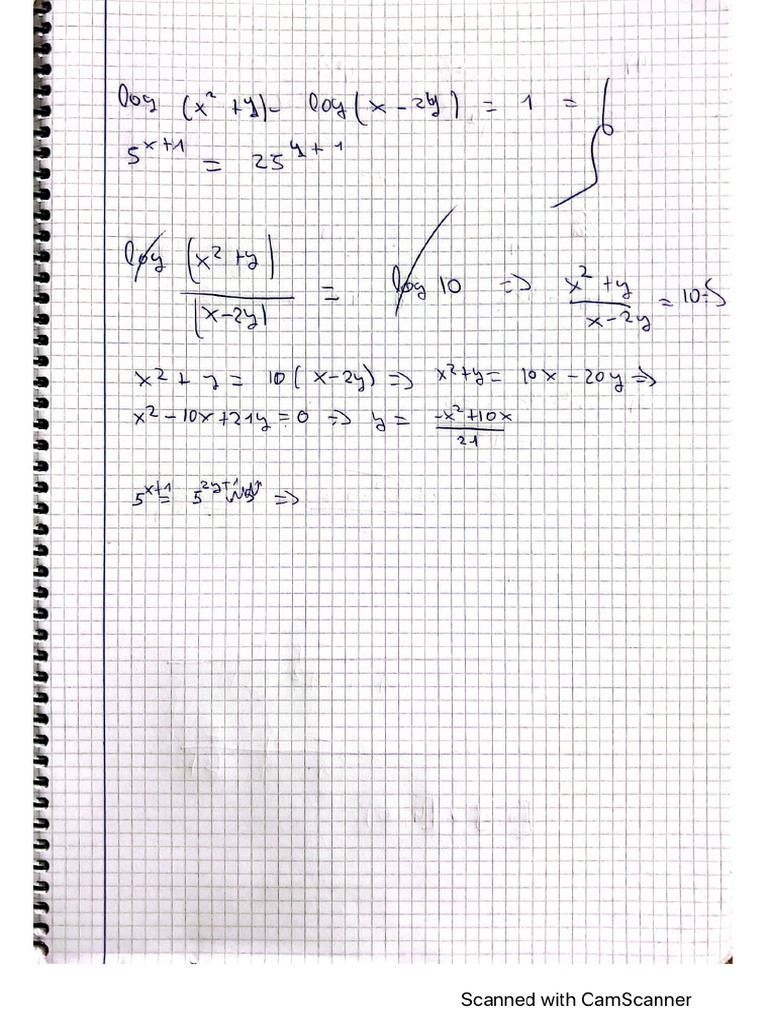 log (x² + y) - log(x - 2y) = 1 =
5^(x+1) = 25^(y+1)
log (x² + y) / (x - 2y) = log 10 => (x² + y) / (x - 2y) = 10 =>
x² + y = 10(x - 2y) => x² + y = 10x - 20y =>
x² - 10x + 21y = 0 => y = (-x² + 10x) / 21
5^(x+1) = 5^(2y+1) =>
Scanned with CamScanner